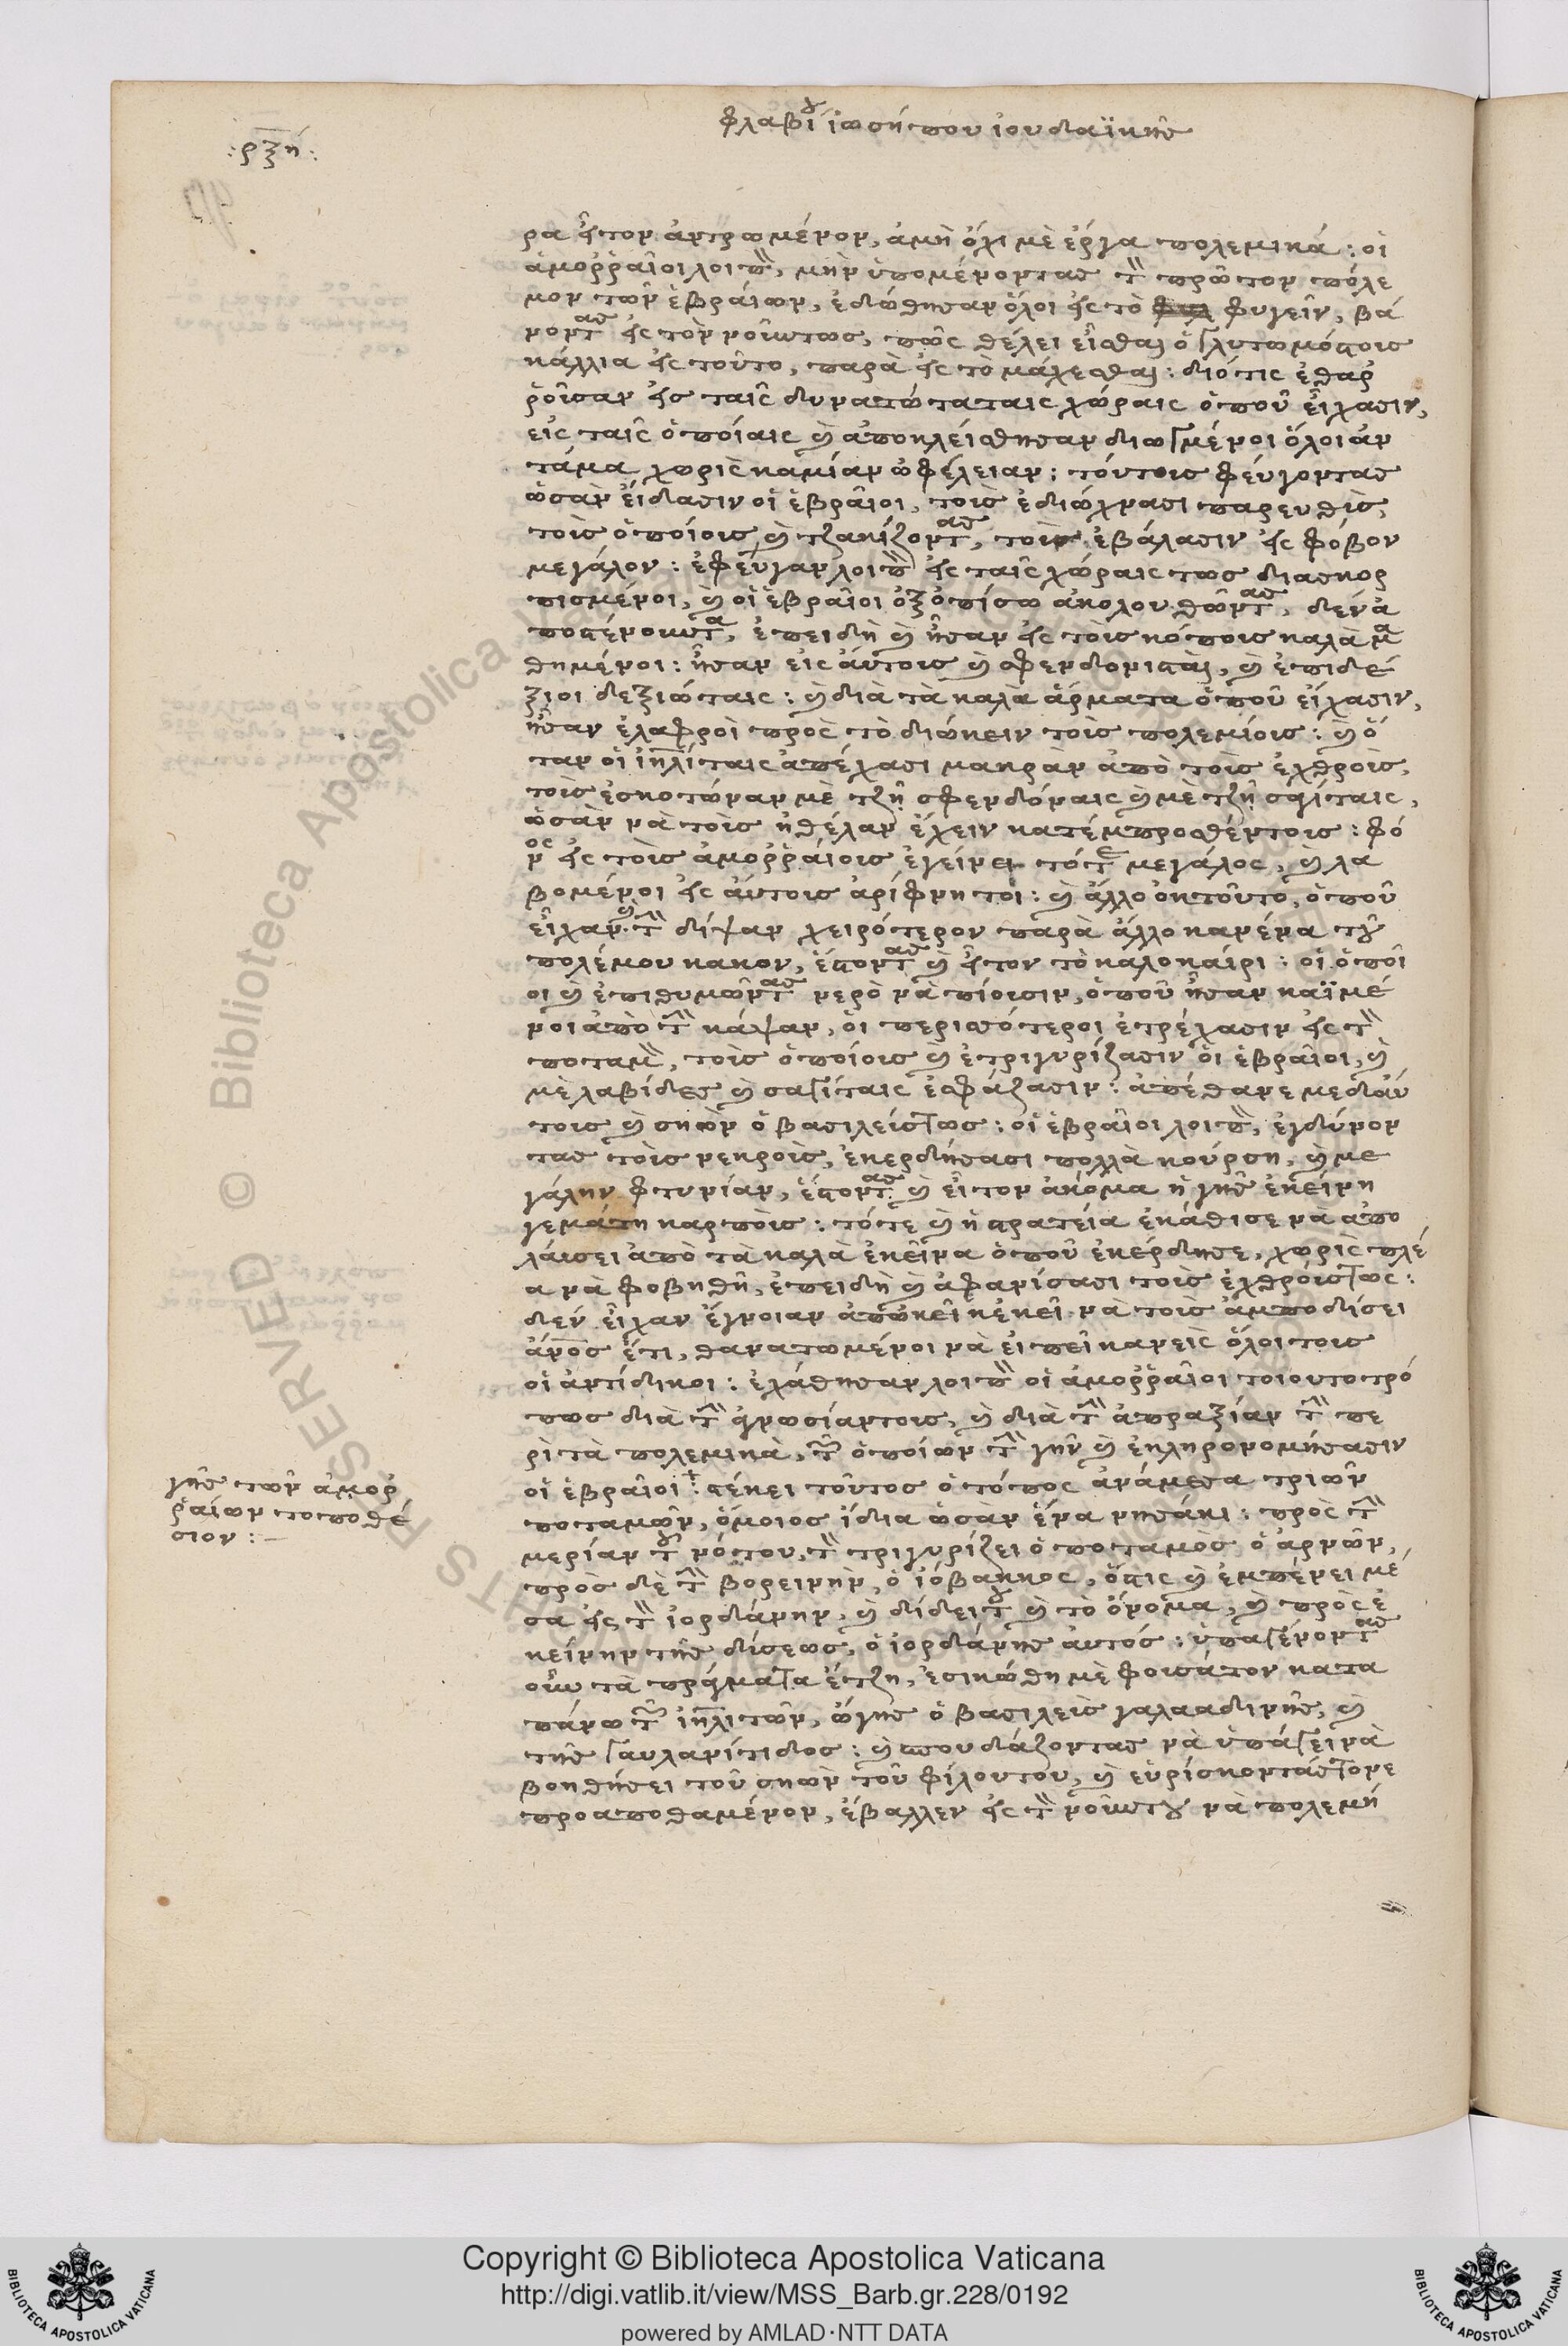 φλαβίου ἰωσήπου ἰουδαϊκῆς
:ρξή:
ρα ἦτον ἀντρωμένον, ἀμὴ ὄχι μὲ ἔργα πολεμικά: οἱ
ἀμοῤῥαῖοι λοιπὸν, μὴν ὑπομένοντας τὸν πρῶτον πόλε
μον τῶν ἑβραίων, ἐδώθησαν ὅλοι εἰς τὸ φυγεῖν, βά
νοντας εἰς τὸν νοῦν τως, πῶς θέλει εἶσθαι ὁ γλυτωμός τοις
κάλλια εἰς τοῦτο, παρὰ εἰς τὸ μάχεσθαι: διότις ἐθαῤ
ῥοῖσαν εἰς ταῖς δυνατώταταις χώραις ὁποῦ εἴχασιν,
εἰς ταῖς ὁποίαις καὶ ἀποκλείσθησαν διωγμένοι ὅλοι ἀν
τάμα χωρὶς καμίαν ὠφέλειαν: τούτοις φεύγοντας
ὡσὰν εἴδασιν οἱ ἑβραῖοι, τοὶς ἐδιώχνασι παρευθὶς,
τοὶς ὁποίοις καὶ τζακίζοντας, τοὶς ἐβάλασιν εἰς φόβον
μεγάλον: ἐφεύγαν λοιπὸν εἰς ταῖς χώραις τως διασκορ
πισμένοι, καὶ οἱ ἑβραῖοι ὀξοπίσω ἀκολουθῶντας, δὲν ἀ
ποσένουνται, ἐπειδὴ καὶ ἦσαν εἰς τοὶς κόποις καλὰ μα
θημένοι: ἦσαν εἰς αὔτοις καὶ σφενδονισταὶ, καὶ ἐπιδέ
ξιοι δεξιώταις: καὶ διὰ τὰ καλὰ ἄρματα ὁποῦ εἴχασιν,
ἦσαν ἐλαφροὶ πρὸς τὸ διώκειν τοὶς πολεμίοις: καὶ ὅ
ταν οἱ ἰηλίταις ἀπέχασι μακρὰν ἀπὸ τοὶς ἐχθροὶς,
τοὶς ἐσκοτώναν μὲ τζῆ σφενδόναις καὶ μὲ τζῆ σαΐταις,
ὡσὰν νὰ τοὶς ἠθέλαν ἔχειν κατέμπροσθέν τοις: φό
νος εἰς τοὶς ἀμοῤῥαίοις ἐγείνει τότε μεγάλος, καὶ λα
βομένοι εἰς αὔτοις ἀρίφνητοι: καὶ ἄλλο ὀκ τοῦτο, ὁποῦ
εἶχαν καὶ τὴν δίψαν χειρότερον παρὰ ἄλλο κανένα τοῦ
πολέμου κακον, ἔστοντας καὶ ἦτον τὸ καλοκαίρι: οἱ ὁποῖ
οι καὶ ἐπιθυμῶντας νερὸ νὰ πίοισιν, ὁποῦ ἦσαν καϊμέ
νοι ἀπὸ τὴν κάψαν, οἱ περισσότεροι ἐτρέχασιν εἰς τὸν
ποταμὸν, τοὶς ὁποίοις καὶ ἐτριγυρίζασιν οἱ ἑβραῖοι, καὶ
μὲ λαβίδες καὶ σαγίταις ἐσφάζασιν: ἀπέθανε μεδαύ
τοις καὶ σηὼν ὁ βασιλείς τως: οἱ ἑβραῖοι λοιπὸν, ἐγδύνον
τας τοὶς νεκροὶς, ἐκερδήσασι πολλὰ κούρση, καὶ με
γάλην φτυνίαν, ἔστοντας καὶ εἶτον ἀκόμα ἡ γῆς ἐκείνη
γεμάτη καρποὶς: τότε καὶ ἡ στρατεία ἐκάθισε νὰ ἀπο
λαύσει ἀπὸ τὰ καλὰ ἐκεῖνα ὁποῦ ἐκέρδησε, χωρὶς πλέ
α νὰ φοβηθῆ, ἐπειδὴ καὶ ἀφανίσασι τοὶς ἐχθροὶς τως:
δὲν εἶχαν ἔγνοιαν ἀπὼκεῖ κἐκεῖ νὰ τοὶς ἀμποδίσει
ἄνος ἔτι, θανατωμένοι νὰ εἰπεῖ κανεὶς ὅλοι τοις
οἱ ἀντίδικοι: ἐχάθησαν λοιπὸν οἱ ἀμοῤῥαῖοι τοιουτοτρό
πως διὰ τὴν ἀγνωσίαν τοις, καὶ διὰ τὴν ἀπραξίαν τὴν πε
ρὶ τὰ πολεμικὰ, τῶν ὁποίων τὴν γῆν καὶ ἐκληρονομήσασιν
οἱ ἑβραῖοι: στέκει τοῦτος ὁ τόπος ἀνάμεσα τριῶν
ποταμῶν, ὅμοιος ἴδια ὡσὰν ἕνα νησάκι: πρὸς τὴν
μερίαν τοῦ νότου, τὸν τριγυρίζει ὁ ποταμὸς ὁ ἀρνῶν,
πρὸς δὲ τὴν βορεινὴν, ὁ ἰόβακκος, ὅστις καὶ ἐμπένει μέ
σα εἰς τὸν ἰορδάνην, καὶ δίδει τοῦ καὶ τὸ ὄνομα, καὶ πρὸς ἐ
κείνην τῆς δίσεως, ὁ ἰορδάνης αὐτός: ὑπαγένοντας
οὖν τὰ πράγματα ἔτζη, ἐσικώθη μὲ φουσάτον κατα
πάνω τῶν ἰηλιτῶν, ὤγης ὁ βασιλεὶς γαλααδινῆς, καὶ
τῆς γαυλανίτιδος: καὶ σπουδάζοντας νὰ ὑπάγει νὰ
βοηθήσει τοῦ σηὼν τοῦ φίλου του, καὶ εὑρίσκοντάς τονε
προαποθαμένον, ἔβαλλεν εἰς τὸν νοῦν του νὰ πολεμή
γῆς τῶν ἀμοῤ
ῥαίων τοποθέ
σιον:—
Copyright © Biblioteca Apostolica Vaticana
http://digi.vatlib.it/view/MSS_Barb.gr.228/0192
powered by AMLAD·NTT DATA
BIBLIOTECA APOSTOLICA VATICANA
BIBLIOTECA APOSTOLICA VATICANA